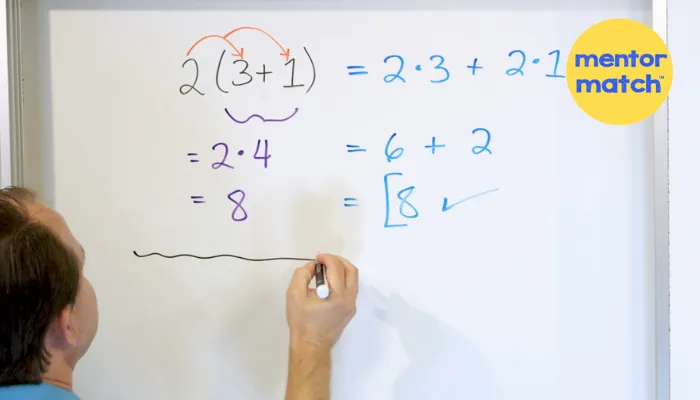 2(3+1) = 2·3 + 2·1
= 2·4 = 6 + 2
= 8 = [8 ✓
mentor
match™